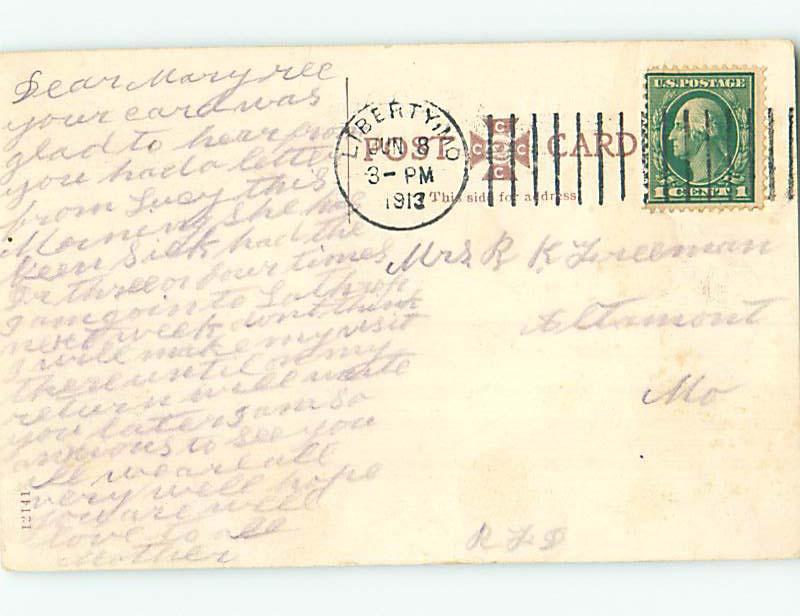 Dear Mary ree
your card was
glad to hear from
you had a letter
from Lucy this
Morning she had
been sick had the
Dr three or four times
I am goin to Lathrop
next week dont think
I will make my visit
there until on my
return will write
you later I am so
anxious to see you
all we are all
very well hope
you are well
love to all
Mother
12141
LIBERTY, MO
JUN 8
3-PM
1913
POST CARD
This side for address
U.S. POSTAGE
1 CENT 1
Mrs. R K Freeman
Altamont
Mo
R F D